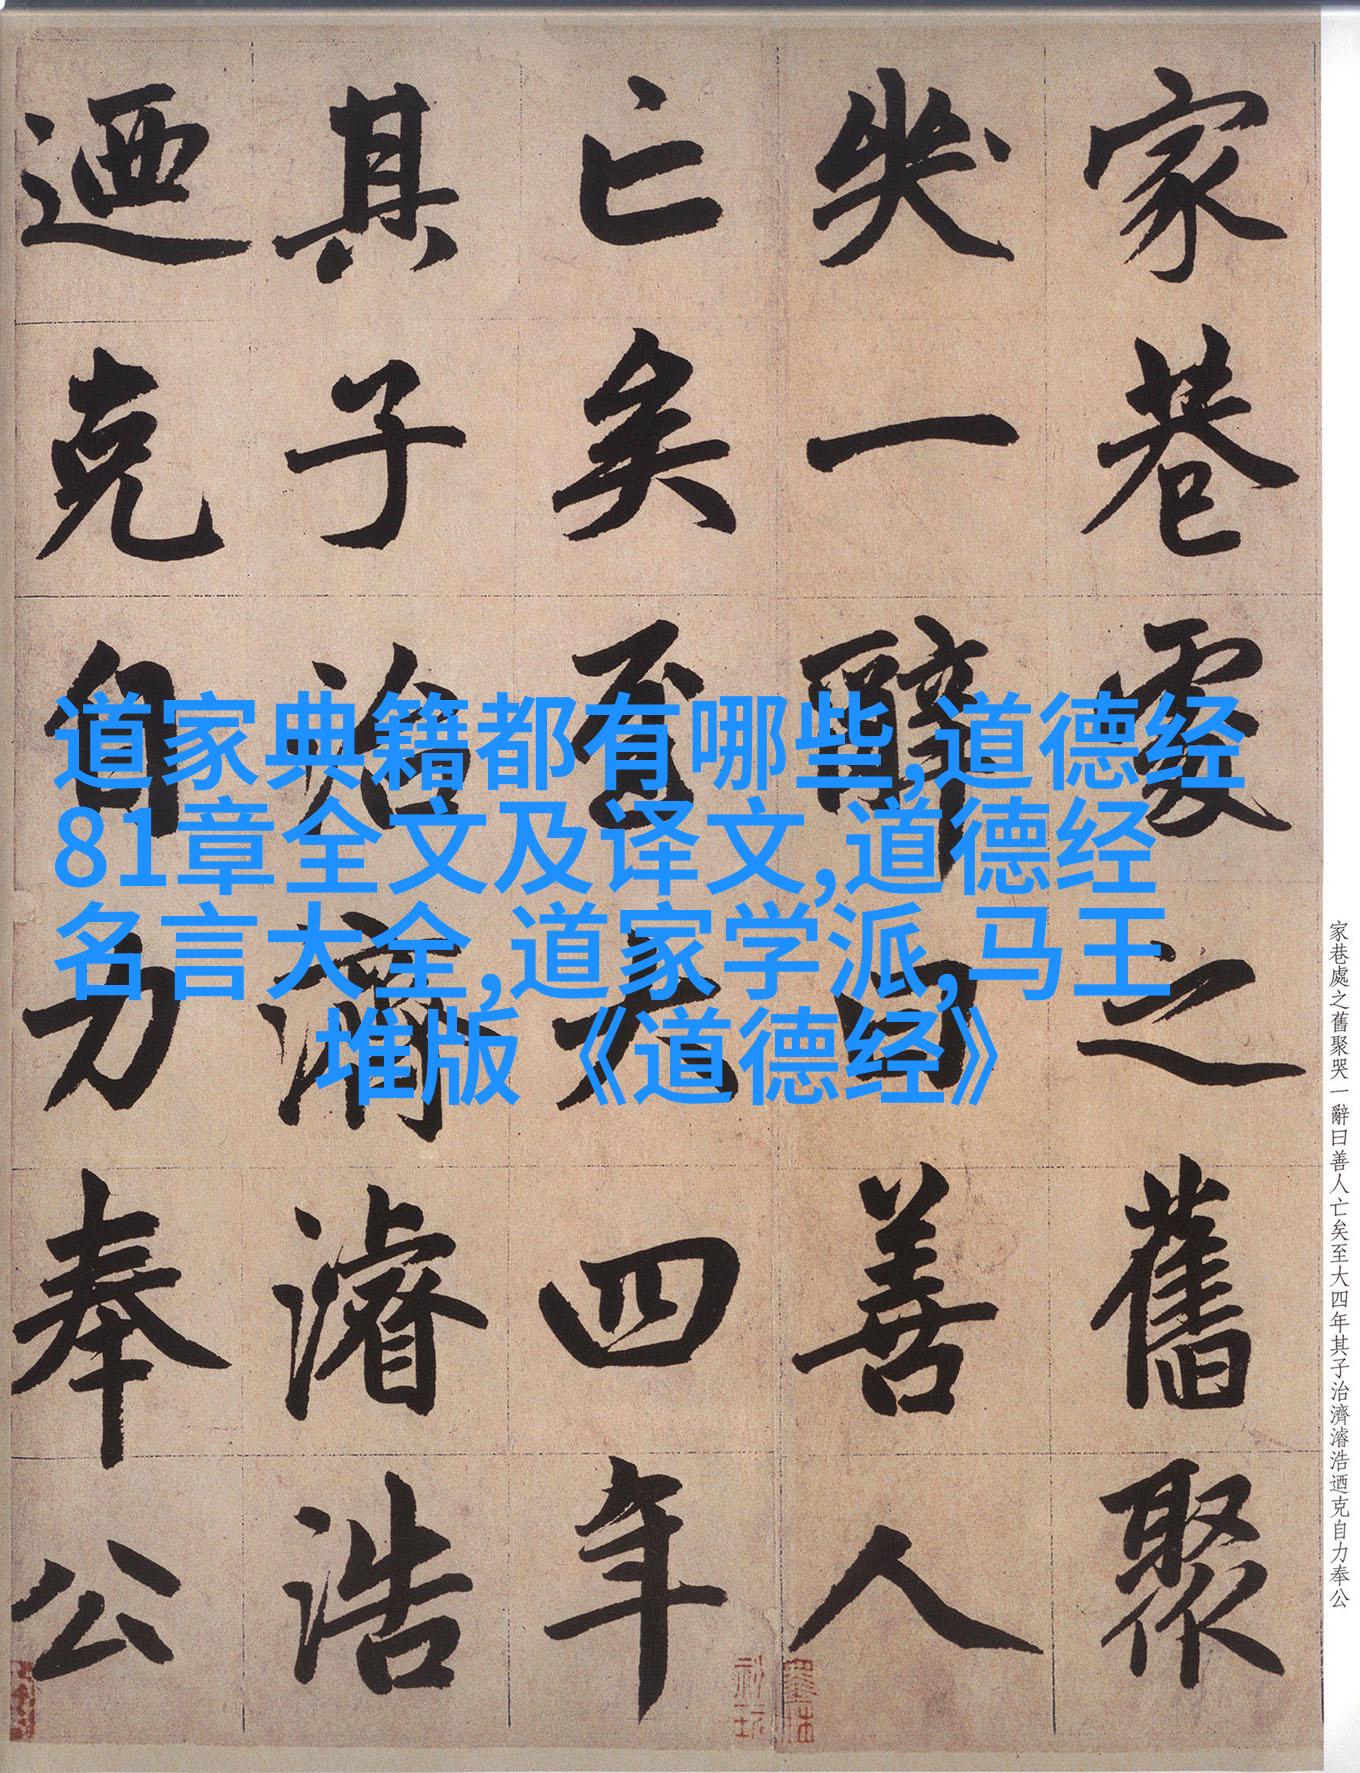 家巷處之舊聚
哭一辭曰善人
亡矣至大四年
其子治濟濬浩
迺克自力奉公
道家典籍都有哪些,道德经
81章全文及译文,道德经
名言大全,道家学派,马王
堆版《道德经》
家巷處之舊聚哭一辭曰善人亡矣至大四年其子治濟濬浩迺克自力奉公